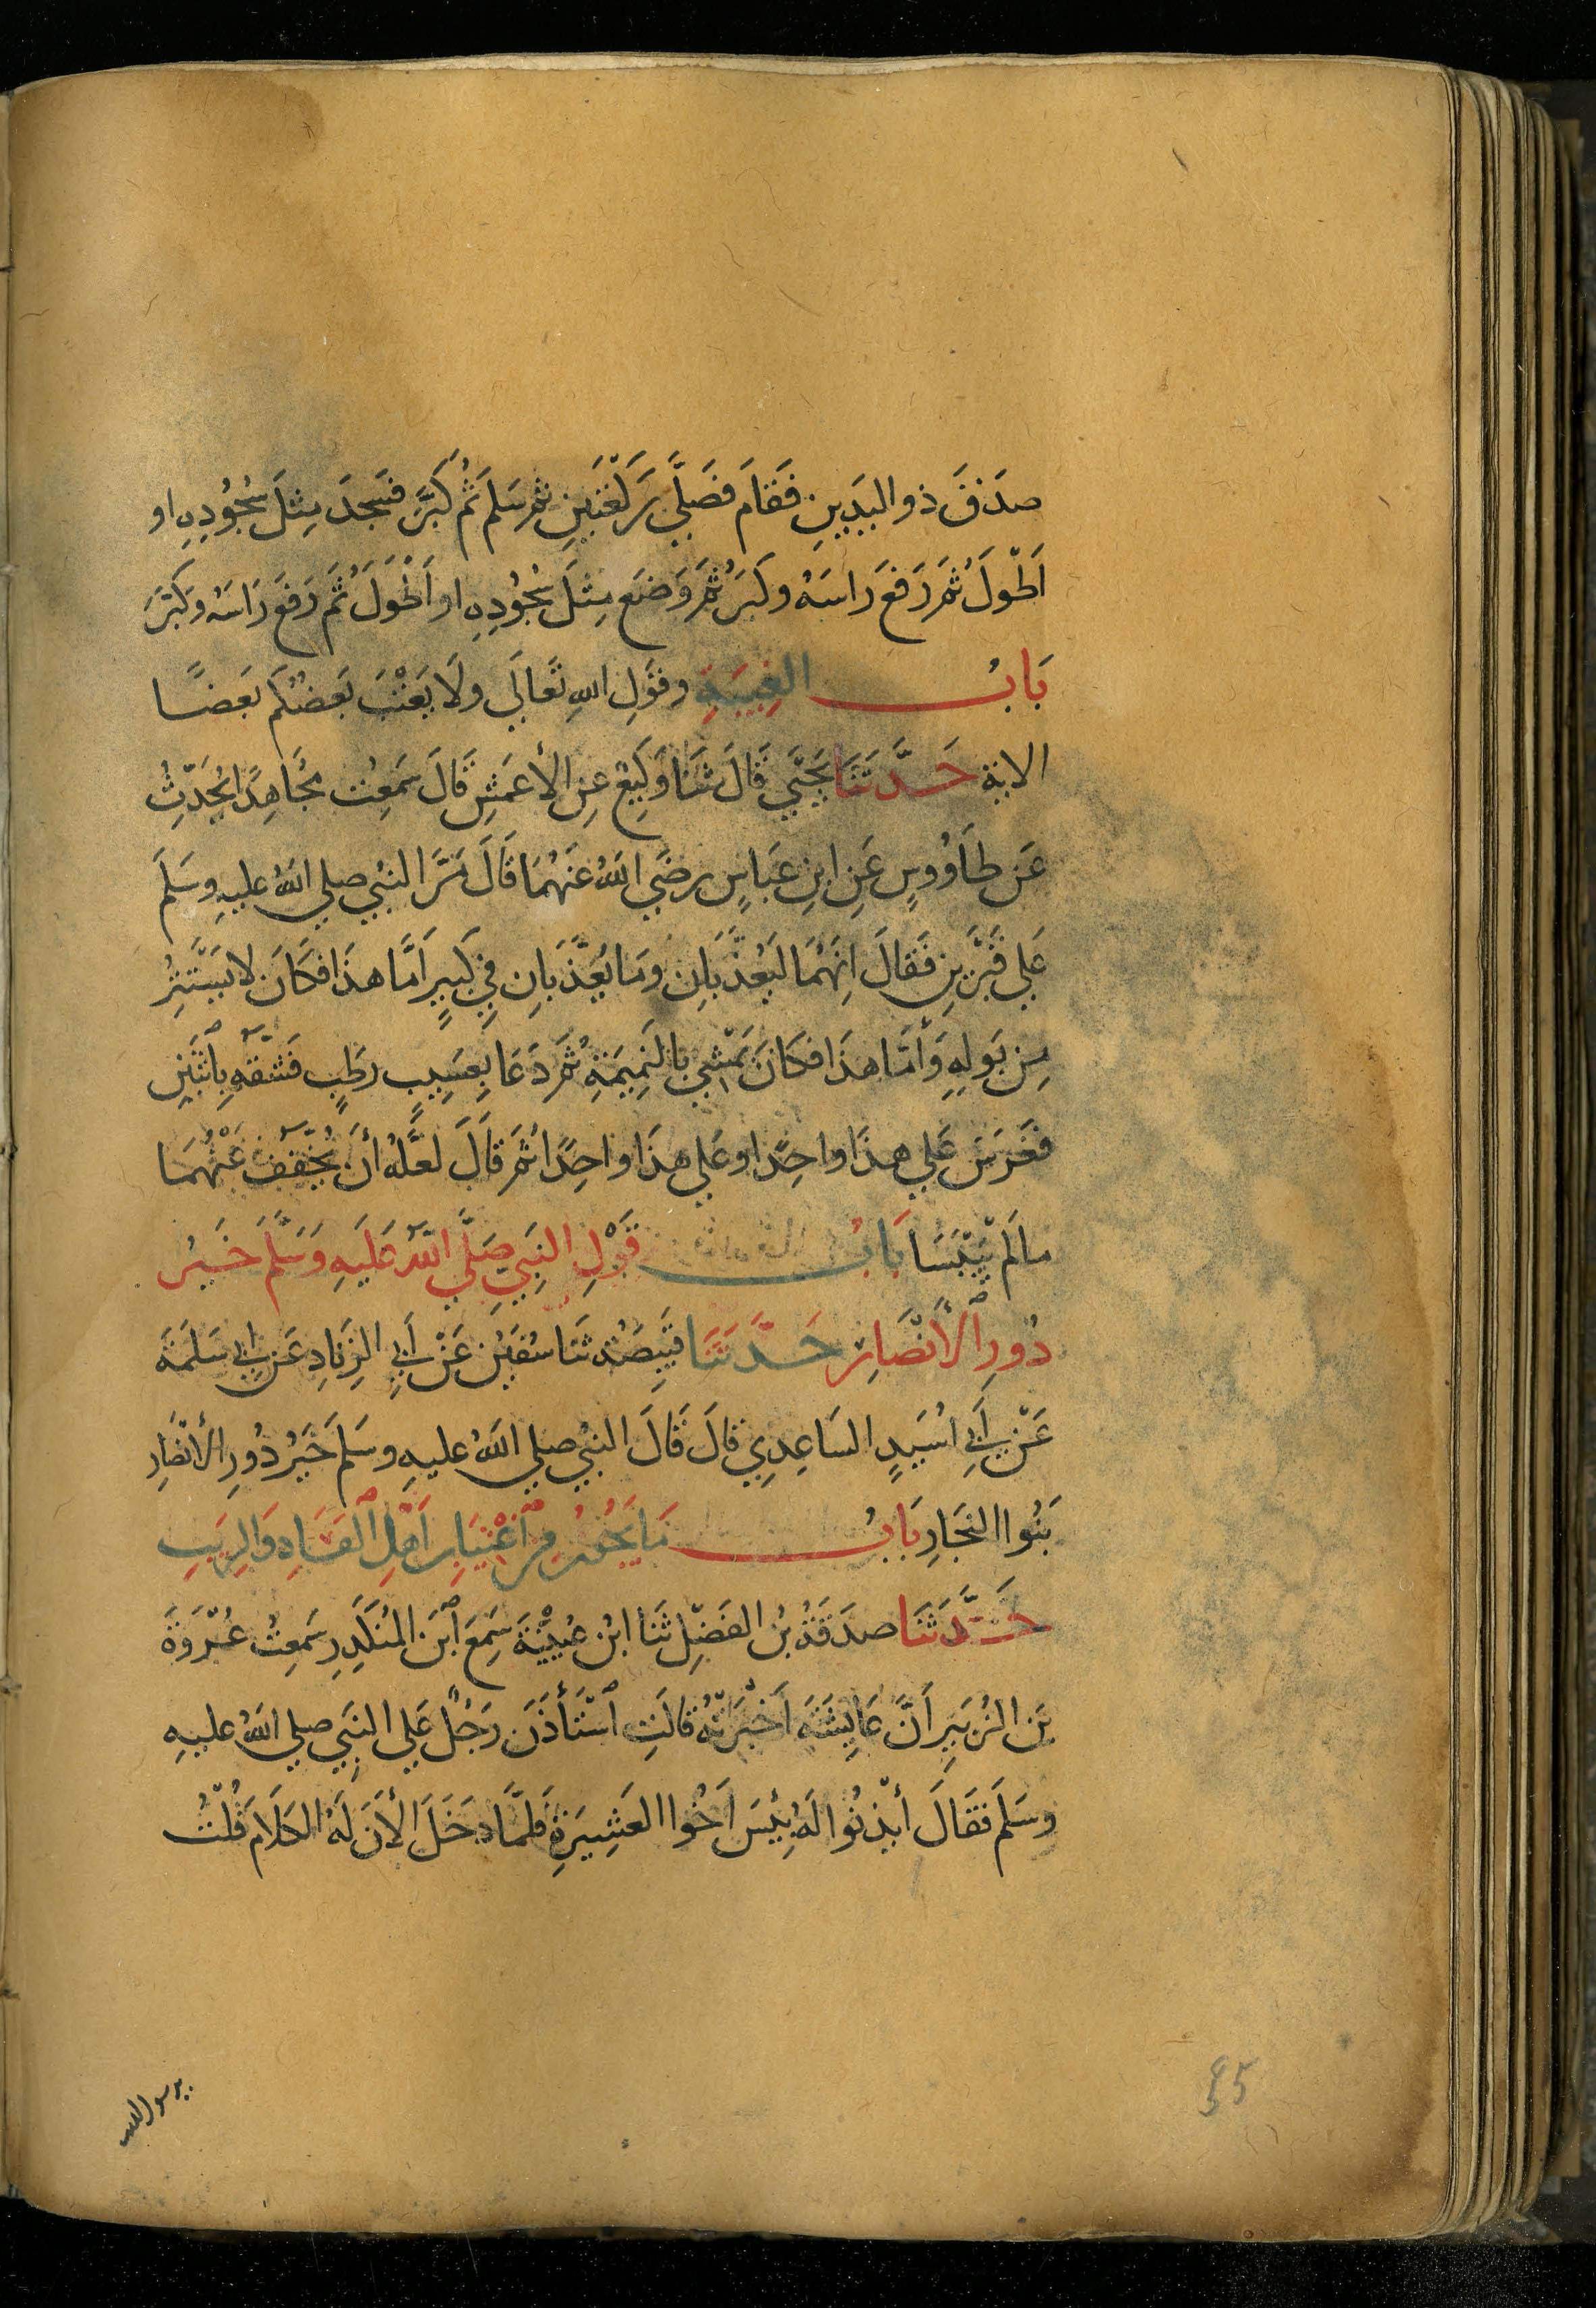 صَدَقَ ذو اليَدَينِ فَقَامَ فَصَلَّي رَكْعَتَينِ ثُمَّ سَلَمَ ثُمَّ كَبَّرَ فَسَجَدَ مِثلَ سُجُودِهِ او
اَطْوَلَ ثُمَّ رَفعَ رَاسَهُ وكَبَرَ ثُمَّ وَضَعَ مِثلَ سُجُودِهِ او اَطْوَلَ ثُمَّ رَفعَ رَاسَهُ وَكَبَّرَ
بَابُ الغِيبَةِ وقَولِ اللهِ تَعَالَي ولَا يَغْتَب بَعضُكُم بَعضًا
الاية حَدَّثَنَا يَحيَي قَالَ ثنَا وَكِيعٌ عنِ الأعمَشِ قَالَ سَمعتُ مُجَاهِدًا يُحَدِّثُ
عَن طَاوُوسٍ عَنِ ابنِ عَبَاسٍ رضَي اللهُ عَنهُمَا قَالَ مَرَّ النبيُ صلي اللهُ عليهِ وسَلمَ
عَلي قَبْرَينِ فَقَالَ اِنَهُمَا لَيُعَذَّبَانِ ومَا يُعَذَّبَانِ فِي كَبِيرٍ اَمَّا هذَا فكَانَ لا يَستَتِرُ
مِن بَولِهِ وَأمَّا هذَا فكَانَ يَمْشِي بالنَمِيمَةِ ثُمَّ دَعَا بِعَسِيبٍ رطبٍ فَشَقَّهُ بِاثنَينِ
فغَرَسَ عَلي هذَا واحِدًا وعَلي هذَا واحِدًا ثُمَّ قَالَ لعَلَّهُ أنْ يُخَفَّفَ عَنْهُمَا
مالَم يَيْبَسَا بَابُ قَوْلِ النبَيِ صَلَّي اللهُ عَلَيهِ وَسَلَّمَ خَيرُ
دُورِ الأَنْصَارِ حَدَّثَنَا قَبِيصَةُ ثنَا سُفيَن عَنْ اَبِي الزِنادِ عَن ابي سَلَمَةَ
عَنْ اَبِي اُسَيدٍ السَاعِدِي قالَ قَالَ النبيُ صلي اللهُ عليهِ وسَلمَ خَيرُ دُورِ الأنصَارِ
بَنُوا النجَارِ بَابُ مَا يَجُوزُ مِن اغْتِيَابِ اَهْلِ الفَسَادِ وَالرِيَبِ
حَدَّثَنَا صدَقَةُ بنُ الفَضْلِ ثنَا ابنُ عُيَيْنَةَ سَمِعَ ابنَ المُنكَدِرِ سَمعتُ عُرْوَةَ
بنَ الزُبَيرِ أَنَّ عَايِشَةَ اَخْبَرَتْهُ قالَتِ اسْتَأذَنَ رَجُلٌ عَلي النبَي صلي اللهُ عليهِ
وسَلَمَ فقَالَ أيْذنُوا لَهُ بِئسَ اَخُوا العَشِيرَةِ فَلمَّا دَخَلَ الأَنَ لَهُ الكَلَامَ قُلْتُ
يرسول الله